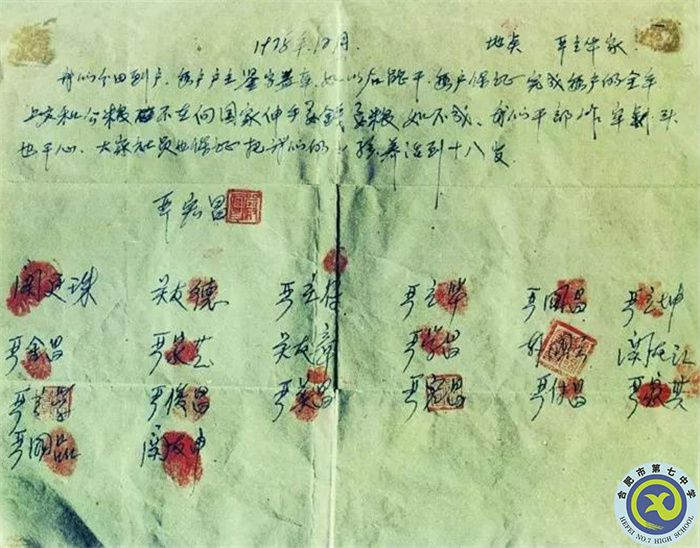 1978年12月. 地点 严立华家
我们分田到户,每户户主签字盖章,如以后能干,每户保证完成每户的全年
上交和公粮 不在向国家伸手要钱要粮 如不成、我们干部作牢刹头
也干心、大家社员也保证把我们的小孩养活到十八岁.
严宏昌
关廷珠 关友德 严立符 严立华 严国昌 严立坤
严金昌 严家芝 关友章 严学昌 韩国云 关友江
严立学 严俊昌 严美昌 严宏昌 严付昌 严家其
严国品 关友申
合肥市第七中学
HEFEI NO.7 HIGH SCHOOL